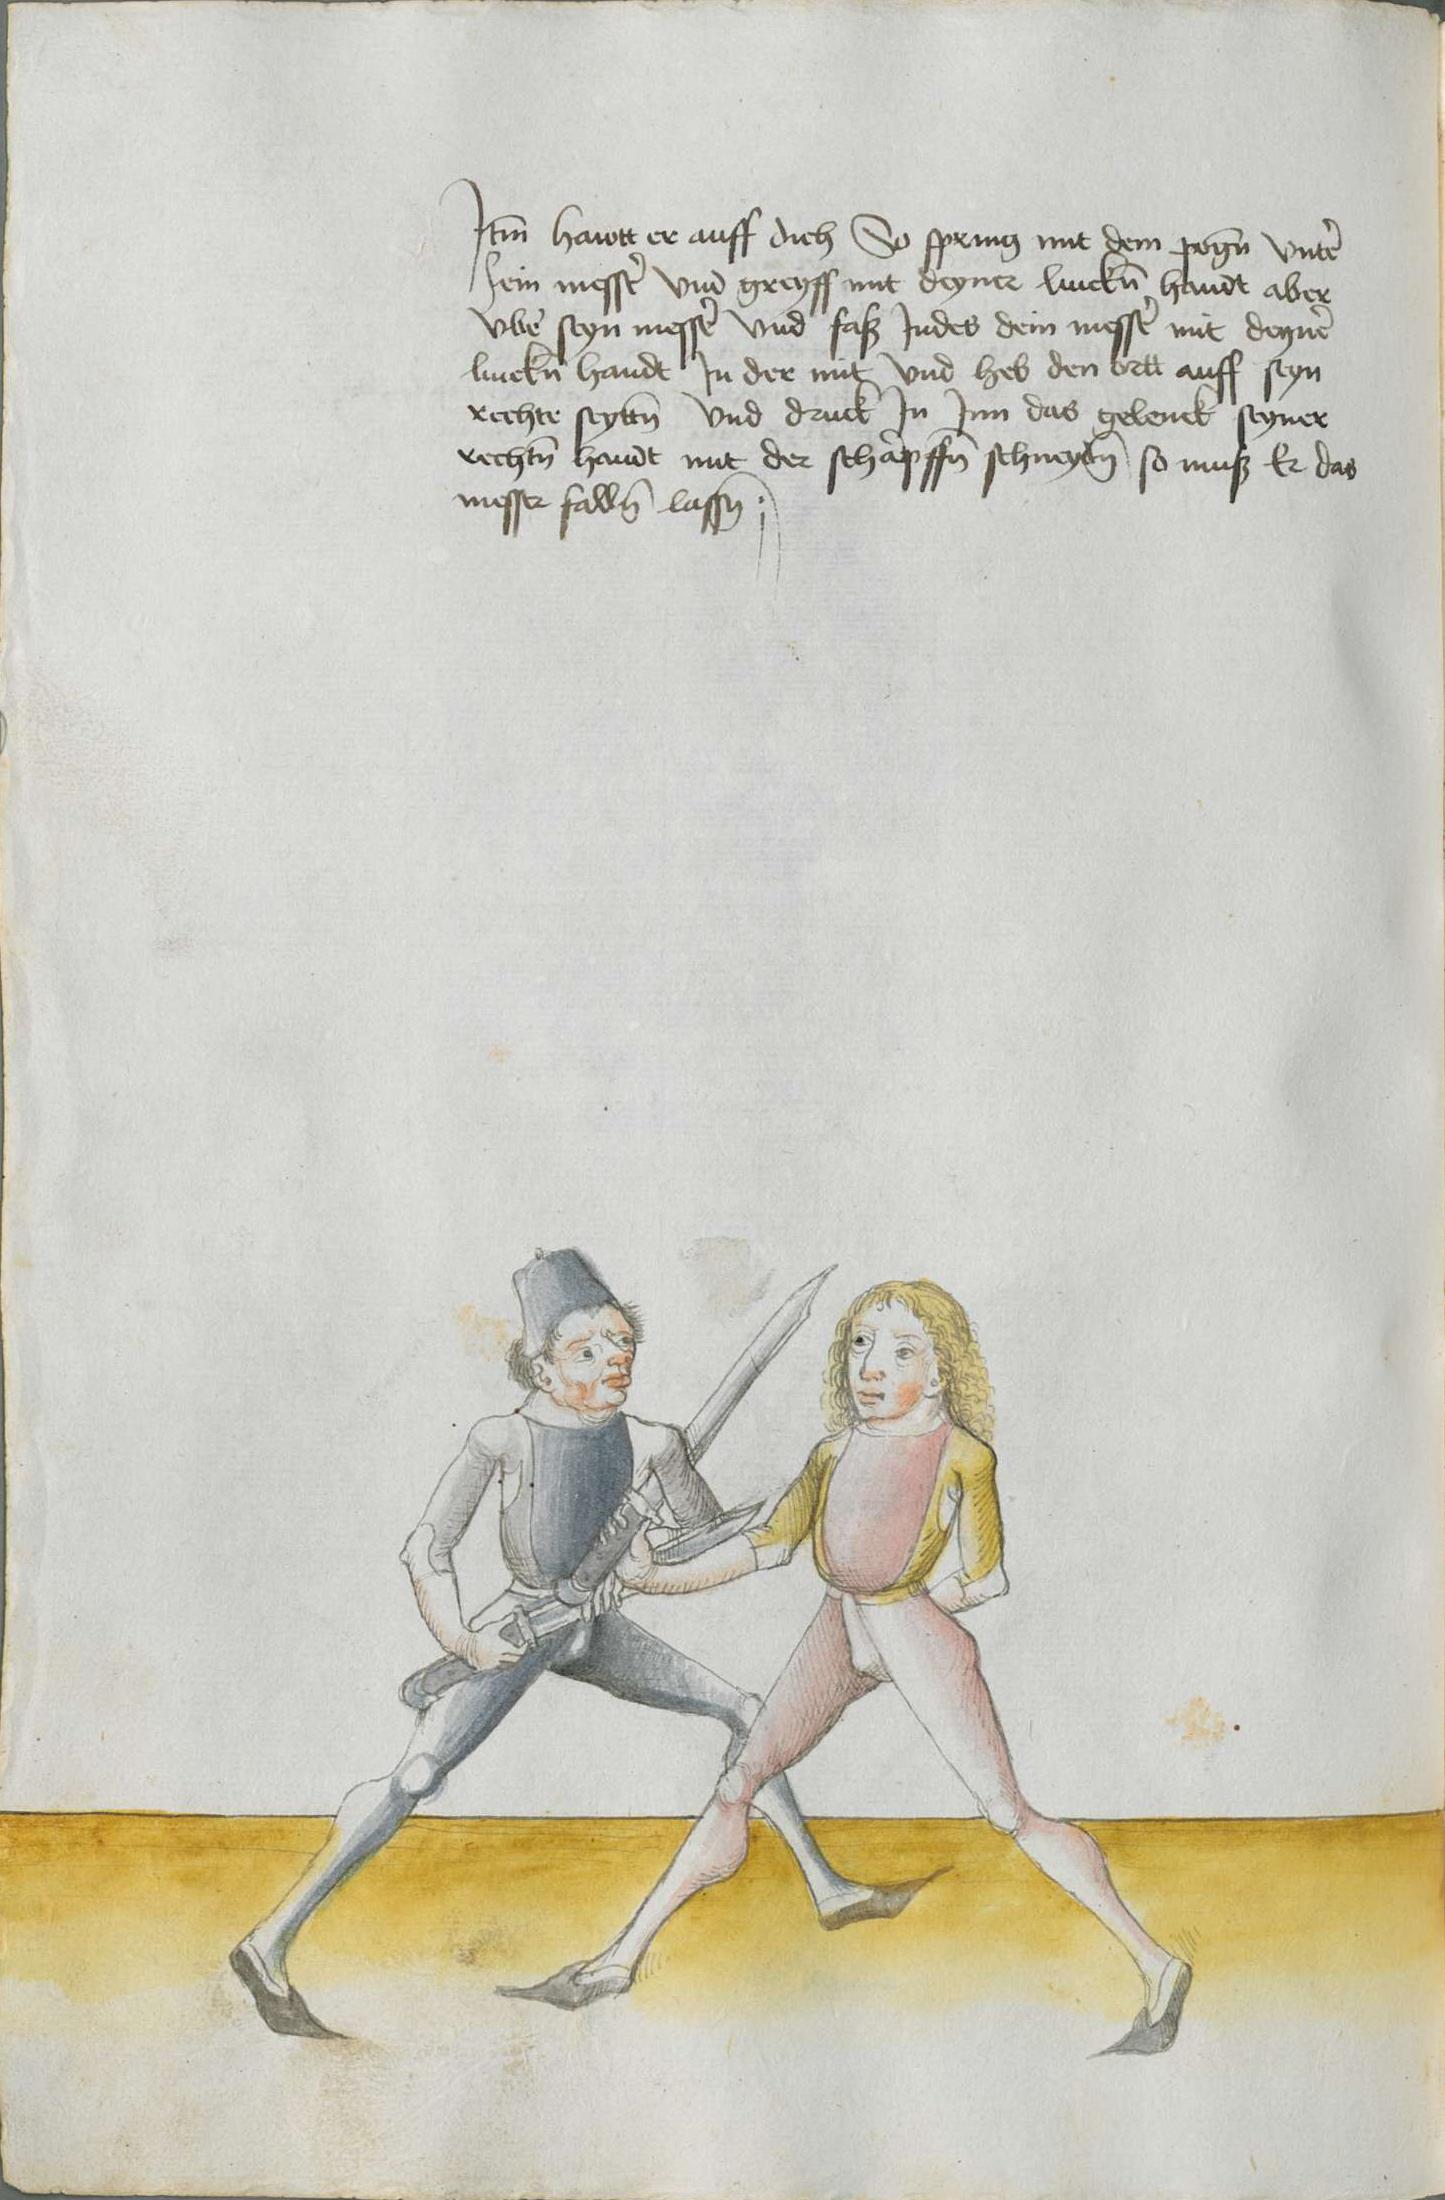 Jtm̄ hawtt er auff dich So spring mit dem pogn̄ vnter̄
sein messer̄ vnd greyff mit deyner linckn̄ handt aber
vber̄ seyn messer̄ vnd faß Jndes dein messer̄ mit deyner̄
linckn̄ handt Jn der mit vnd heb den ortt auff seyn
rechte seyttn̄ vnd druck Jn Jnn das gelenck seyner
rechtn̄ handt mit der scharpffn̄ schneydn̄ so muß Er das
messer falln̄ lassn̄ :